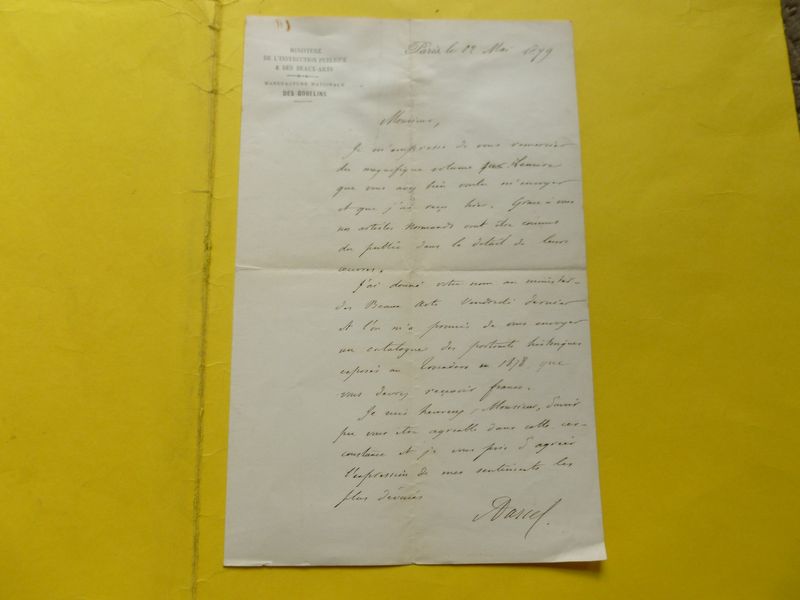 MINISTÈRE
DE L'INSTRUCTION PUBLIQUE
& DES BEAUX-ARTS
MANUFACTURE NATIONALE
DES GOBELINS
Paris, le 12 Mai 1879
Monsieur,
Je m'empresse de vous remercier
du magnifique volume
que vous avez bien voulu m'envoyer
et que j'ai reçu hier. Grace à vous
nos artistes Normands vont être connus
du public dans le détail de leurs
œuvres.
J'ai donné votre nom au ministère
des Beaux Arts Vendredi dernier
et l'on m'a promis de vous envoyer
un catalogue des portraits historiques
exposés au Trocadéro en 1878, que
vous devrez recevoir franco.
Je suis heureux, Monsieur, d'avoir
pu vous être agréable dans cette cir-
constance et je vous prie d'agréer
l'expression de mes sentiments les
plus dévoués
Darcel.